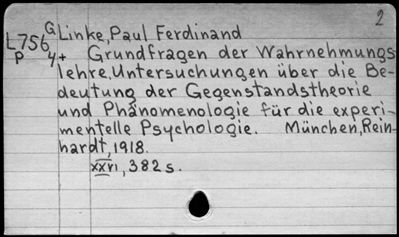 2
G Linke, Paul Ferdinand
L756
P 4+ Grundfragen der Wahrnehmungs
lehre, Untersuchungen über die Be-
deutung der Gegenstandstheorie
und Phänomenologie für die experi-
mentelle Psychologie. München, Rein-
hardt, 1918.
xxvi, 382 s.